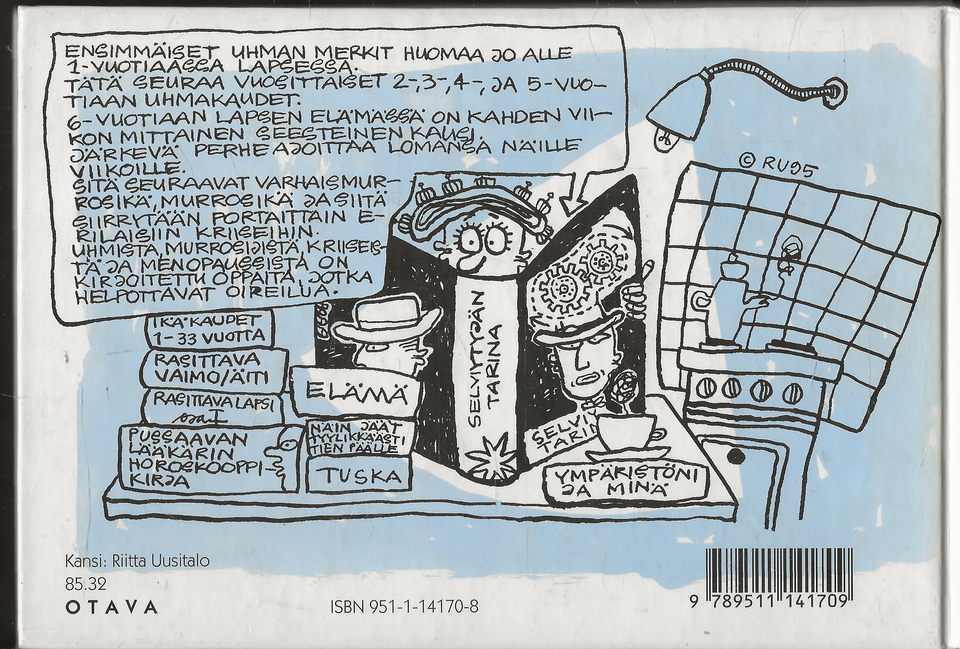 ENSIMMÄISET UHMAN MERKIT HUOMAA JO ALLE
1-VUOTIAASSA LAPSESSA.
TÄTÄ SEURAA VUOSITTAISET 2-,3-,4-, JA 5-VUO-
TIAAN UHMAKAUDET.
6-VUOTIAAN LAPSEN ELÄMÄSSÄ ON KAHDEN VII-
KON MITTAINEN SEESTEINEN KAUSI.
JÄRKEVÄ PERHE AJOITTAA LOMANSA NÄILLE
VIIKOILLE.
SITÄ SEURAAVAT VARHAISMUR-
ROSIKÄ, MURROSIKÄ JA SIITÄ
SIIRRYTÄÄN PORTAITTAIN E-
RILAISIIN KRIISEIHIN.
UHMISTA, MURROSIJISTÄ, KRIISEIS-
TÄ JA MENOPAUSSISTA ON
KIRJOITETTU OPPAITA, JOTKA
HELPOTTAVAT OIREILUA.
© RU95
IKÄKAUDET
1-33 VUOTTA
RASITTAVA
VAIMO/ÄITI
RASITTAVA LAPSI
osa I
PUSSAAVAN
LÄÄKÄRIN
HOROSKOOPPI-
KIRJA
ELÄMÄ
NÄIN JÄÄT
TYYLIKKÄÄSTI
TIEN PÄÄLLE
TUSKA
SELVIYTYJÄN
TARINA
SELVI
TARIN
YMPÄRISTÖNI
JA MINÄ
Kansi: Riitta Uusitalo
85.32
OTAVA
ISBN 951-1-14170-8
9 789511 141709